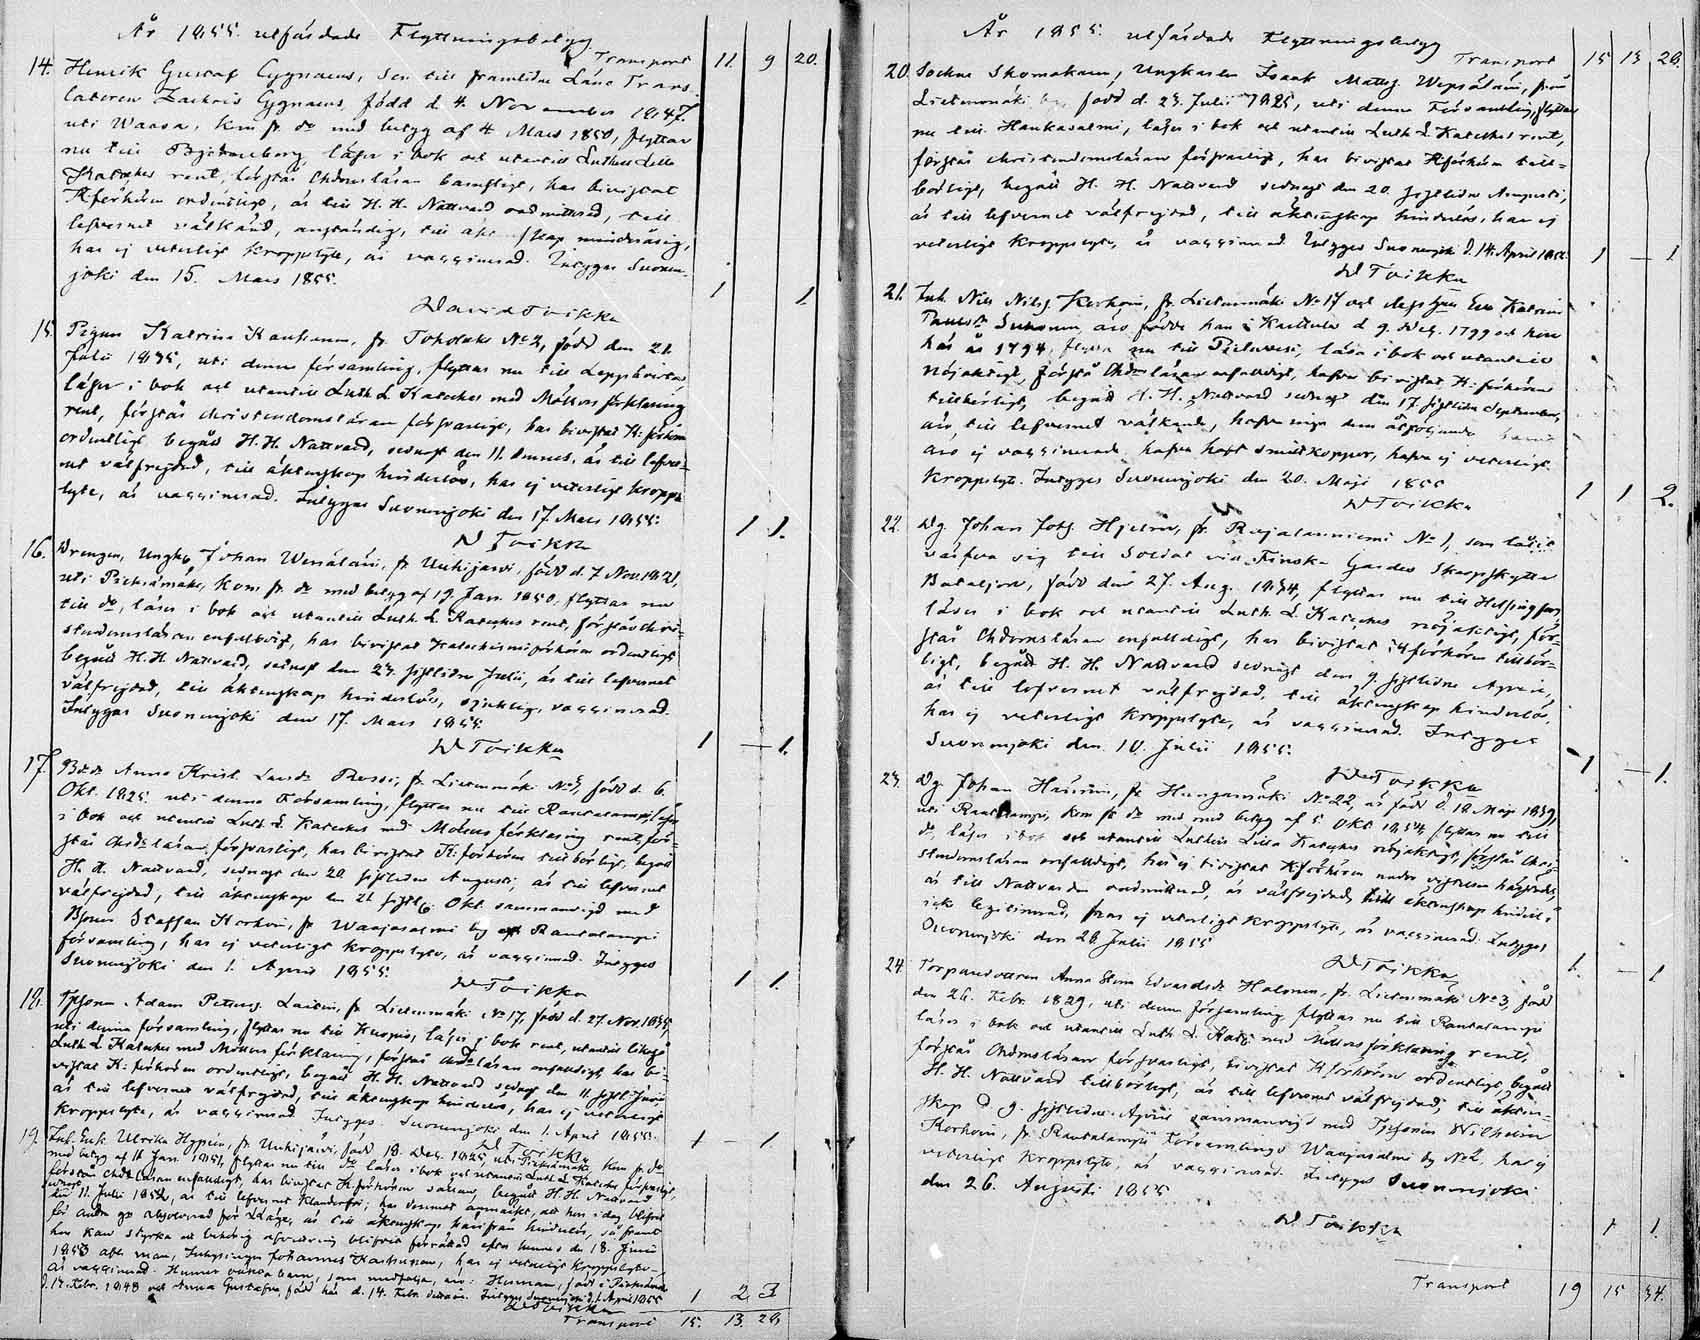 År 1855. utfärdade Flyttningsbetyg
Transport 11. 9 20.
14. Henrik Gustaf Cygnaeus, Son till framlidne Läns Trans-
latoren Zachris Cygnaeus, född d. 4. November 1847.
uti Waasa, kom fr. do med betyg af 4 Mars 1850, flyttar
nu till Björneborg, läser i bok och utantill Luthers Lilla
Kateches rent, förstår Chdomsläran barnsligt, har bivistat
K förhören ordentligt, är till H. H. Nattvard oadmitterad, till
lefvernet välkänd, anständig, till äktenskap minderårig,
har ej veterligt kroppslyte, är vaccinerad. Intygas Suonen-
joki den 15. Mars 1855. 1 1
David Toikka
15. Pigan Katrina Kauhanen, fr. No 2, född den 21.
Julii 1835, uti denna församling, flyttar nu till Leppävirta,
läser i bok och utantill Luth L Kateches med Möllers förklaring
rent, förstår christendomsläran försvarligt, har bivistat K: förhören
ordentligt, begått H. H. Nattvard, sednast den 11. dennes, är till lefver-
net välfrejdad, till äktenskap hinderlös, har ej veterligt kropps-
lyte, är vaccinerad. Intygas Suonenjoki den 17. Mars 1855. 1 1.
D Toikka
16. Drengen, Ungk. Johan Wenäläin, fr. Uuhijärvi, född d. 7 Nov. 1821,
uti Pieksämäki, kom fr. do med betyg af 19. Jan. 1850, flyttar nu
till do, läser i bok och utantill Luth. L. Kateches rent, förstår chri-
stendomsläran enfaldigt, har bivistat Katechismiförhören ordentligt
begått H. H. Nattvard, sednast den 23. sistlidne Julii, är till lefvernet
välfrejdad, till äktenskap hinderlös, vaccinerad.
Intygas Suonenjoki den 17. Mars 1855 1 — 1.
D Toikka
17. Anna Krist. Larsdr Rossi, fr. Lietenmäki No 5, född d. 6.
Okt. 1825. uti denna Församling, flyttar nu till Rautalampi, läser
i bok och utantill Luth. L Kateches med Möllers förklaring rent, för-
står Chrdsläran försvarligt, har bivistat K: förhören tillbörligt, begått
H. H. Nattvard, sednast den 20 sistliden Augusti, är till lefvernet
välfrejdad, till äktenskap den 21 sistl. Okt. sammanvigd med
Bonen Staffan Korhoin, fr. Waajasalmi by af Rautalampi
församling, har ej veterligt kroppslyte, är vaccinerad. Intygas
Suonenjoki den 1. April 1855. 1 1.
D Toikka
18. Adam Petters. Laitin, fr. Lietenmäki No 17, född d. 27. Nov. 1835,
uti denna församling, flyttar nu till Kuopio, läser i bok rent, utantill likaså
Luth L Kateches med Möllers förklaring, förstår Chdsläran enfaldigt, har bi-
vistat K: förhören ordentligt, begått H. H. Nattvard sednast den 11. sistl. Junii
är till lefvernet välfrejdad, till äktenskap hinderlös, har ej veterligt
kroppslyte, är vaccinerad. Intygas. Suonenjoki den 1. April 1855. 1 — 1.
D Toikka
19. Inh. Enk. Ulrika Hyppöin, fr. Uuhijärvi, född 18. Dec. 1825, uti Pieksämäki, kom fr. do
med betyg af 11 Jan. 1854, flyttar nu till do, läser i bok och utantill Luth. L. Kateches försvarligt,
förstår chdsläran enfaldigt, har bivistat K. förhören sällan, begått H. H. Nattvard
sednast
den 11. Julii 1852, är till lefvernet att hon i dag blifvit
för andra är till äktenskap härifrån hinderlös, så framt
hon kan styrka att behörig blifvit förrättad efter hennes den 18. Junii
1853 afl. man, Inhysingen Johannes Karhunen, har ej veterligt kroppslyte,
är vaccinerad. Hennes barn, som medfölja, äro: Herman, född i Pieksämäki
d. 14. Febr. 1848 och Anna Gustafva, född här d. 14. Febr. Intygas Suonenjoki d. 1. April 1855 1 2 3
D Toikka
Transport 15. 13. 28.
År 1855. utfärdade Flyttningsbetyg
Transport 15 13 28.
20. Sockne Skomakaren, Ungkarlen Isaak Matts. Wepsäläin, från
Lietenmäki by, född d. 23. Julii 1825, uti denna Församling, flyttar
nu till Hankasalmi, läser i bok och utantill Luth L Kateches rent,
förstår christendomsläran försvarligt, har bivistat Kförhören till-
börligt, begått H. H. Nattvard sednast den 20. sistlidne Augusti,
är till lefvernet välfrejdad, till äktenskap hinderlös, har ej
veterligt kroppslyte, är vaccinerad. Intygas Suonenjoki d. 14. April 1855. 1 — 1
D Toikka
21. Inh. Nils Nilss. Korhoin, fr. Lietenmäki No 17 och dess hustru Eva Katrina
Paulsdr Suhonen, äro födde han i Karttula d 9. Dec. 1799 och hon
här år 1794, flytta nu till Pielavesi, läsa i bok och utantill
nöjaktigt, förstå Chdsläran enfaldigt, hafva bivistat K: förhören
tillbörligt, begått H. H. Nattvard sednast den 17. sistlidne September,
äro, till lefvernet välkände, hafva inga dem åtföljande barn
äro ej vaccinerade, hafva haft smittkoppor, hafva ej veterligt
kroppslyte. Intygas Suonenjoki den 20. Maji 1855 1 1 2.
D Toikka
22. Dg. Johan Johs. Hjelm, fr. Rajalanniemi No 1, som låtit
värfva sig till Soldat vid Finska Gardes Skarpskytte
Bataljon, född den 27. Aug. 1834, flyttar nu till Helsingfors
läser i bok och utantill Luth. L. Kateches nöjaktigt, för-
står Chdomsläran enfaldigt, har bivistat K förhören tillbör-
ligt, begått H. H. Nattvard sednast den 9. sistlidne April,
är till lefvernet välfrejdad, till äktenskap hinderlös,
har ej veterligt kroppslyte, är vaccinerad. Intygas
Suonenjoki den 10. Julii 1855. 1 — 1.
D Toikka
23. Dg. Johan Häinin, fr. Hungamäki No 22, är född d. 18 Maji 1839,
uti Rautalampi, kom fr. do med betyg af 5. Okt. 1854, flyttar nu till
do, läser i bok och utantill Luthers Lilla Kateches nöjaktigt, förstår Chri-
stendomsläran enfaldigt, har ej bivistat Kförhören under vistelsen härstädes,
är till Nattvarden oadmitterad, är välfrejdad, till äktenskap
icke legitimerad, har ej veterligt kroppslyte, är vaccinerad. Intygas,
Suonenjoki den 28. Julii 1855 1. — 1
D Toikka
24. Torparedottren Anna Stina Edvardsdr Halonen, fr. Lietenmäki No 3, född
den 26. Febr. 1829, uti denna församling flyttar nu till Rautalampi
läser i bok och utantill Luth L. Kats. med Möllers förklaring rent,
förstår Chdomsläran försvarligt, bivistat K förhören ordentligt, begått
H. H. Nattvard tillbörligt, är till lefvernet välfrejdad, till äkten-
skap d 9. sistlidne April sammanvigd med Wilhelm
Korhoin, fr. Rautalampi Församlings Waajasalmi by No 2, har ej
veterligt kroppslyte, är vaccinerad. Intygas Suonenjoki
den 26. Augusti 1855
D. Toikka 1 1.
Transport 19 15 34.